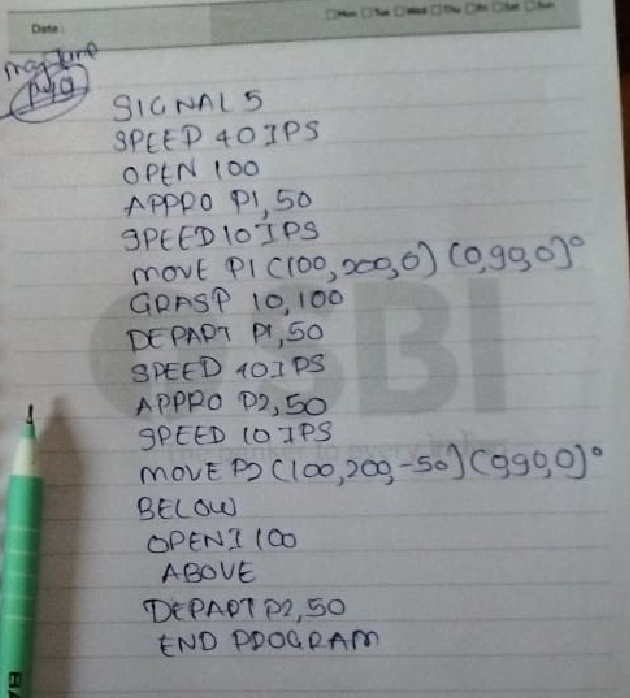 Date:
Mon Tue Wed Thu Fri Sat Sun
SIGNAL 5
SPEED 40 IPS
OPEN 100
APPRO P1, 50
SPEED 10 IPS
MOVE P1 (100, 200, 0) (0, 90, 0)°
GRASP 10, 100
DEPART P1, 50
SPEED 40 IPS
APPRO P2, 50
SPEED 10 IPS
MOVE P2 (100, 200, -50) (0, 90, 0)°
BELOW
OPENI 100
ABOVE
DEPART P2, 50
END PROGRAM
SBI